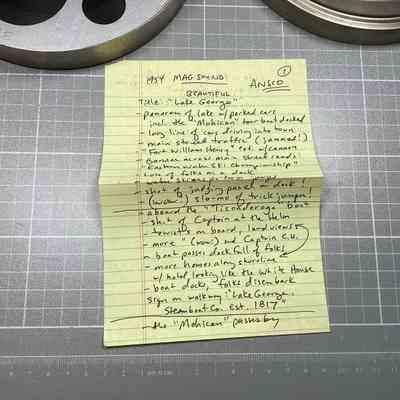 1
1954 MAG SOUND
ANSCO
BEAUTIFUL
Title: "Lake George"
- panorama of lake w/ parked cars
incl. the "Mohican" tour boat docked
- long line of cars driving into town
- main street traffic (jammed!)
- "Fort William Henry" ext. w/ cannon
- Banner across main street reads:
"Eastern Water Ski Championships"
- lots of folks on a dock
- water skiers
- shot of judging panel on dock!
- (wow!) slo-mo of trick jumper!
- aboard the "Ticonderoga" boat
- shot of Captain at the Helm
- tourists on board, land views
- more " (wow) and Captain C.U.
- boat passes dock full of folks
- more homes along shoreline
w/ hotel looking like the White House
- boat docks, folks disembark
sign on walkway: "Lake George
Steamboat Co. Est. 1817"
- the "Mohican" passes by